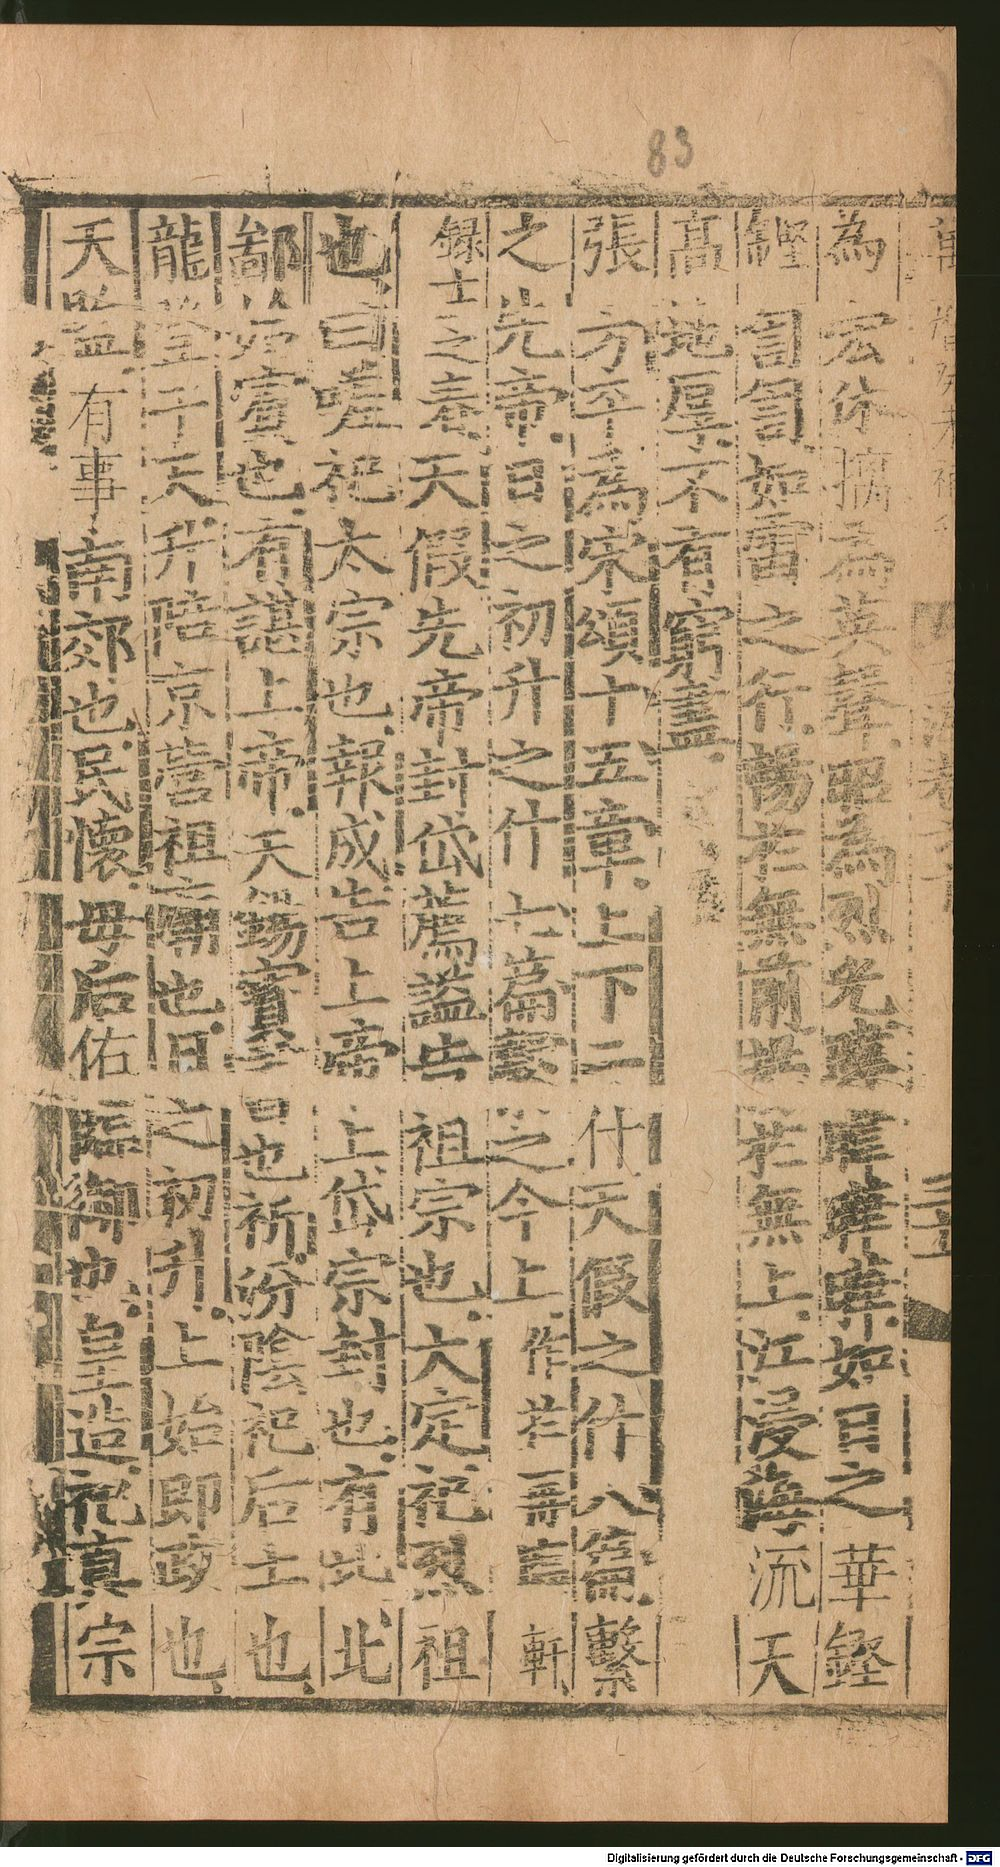 83
為宏休摛為英華昭為烈光曄曄曄曄如日之華鏗
鏗訇訇如雷之行蕩於無前於無上江受海流天
高地厚不有窮盡
張方平為宋頌十五章上下二什天假之什八篇繫
之先帝日之初升之什七篇繫之今上作於辱言軒
録士之毒天假先帝封岱薦謚告祖宗也大定祀烈祖
也曰嗟祀太宗也報成告上帝上岱宗封也有北北
鄙始寧也有諶上帝天錫寶曰也祈汾陰祀后土也
龍登于天升陪京營祖廟也日之初升上始即政也
天監有事南郊也民懷母后佑臨御也皇造祀真宗
Digitalisierung gefördert durch die Deutsche Forschungsgemeinschaft - DFG